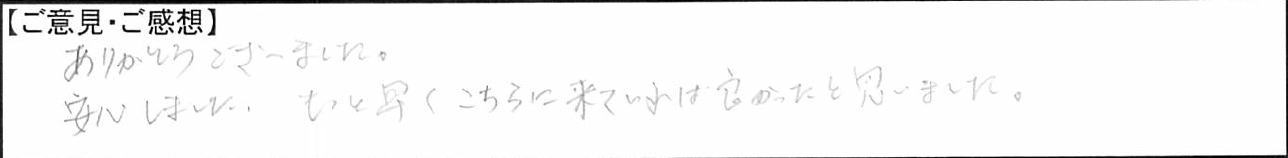 【ご意見・ご感想】
ありがとうございました。
安心しました。もっと早くこちらに来ていれば良かったと思いました。